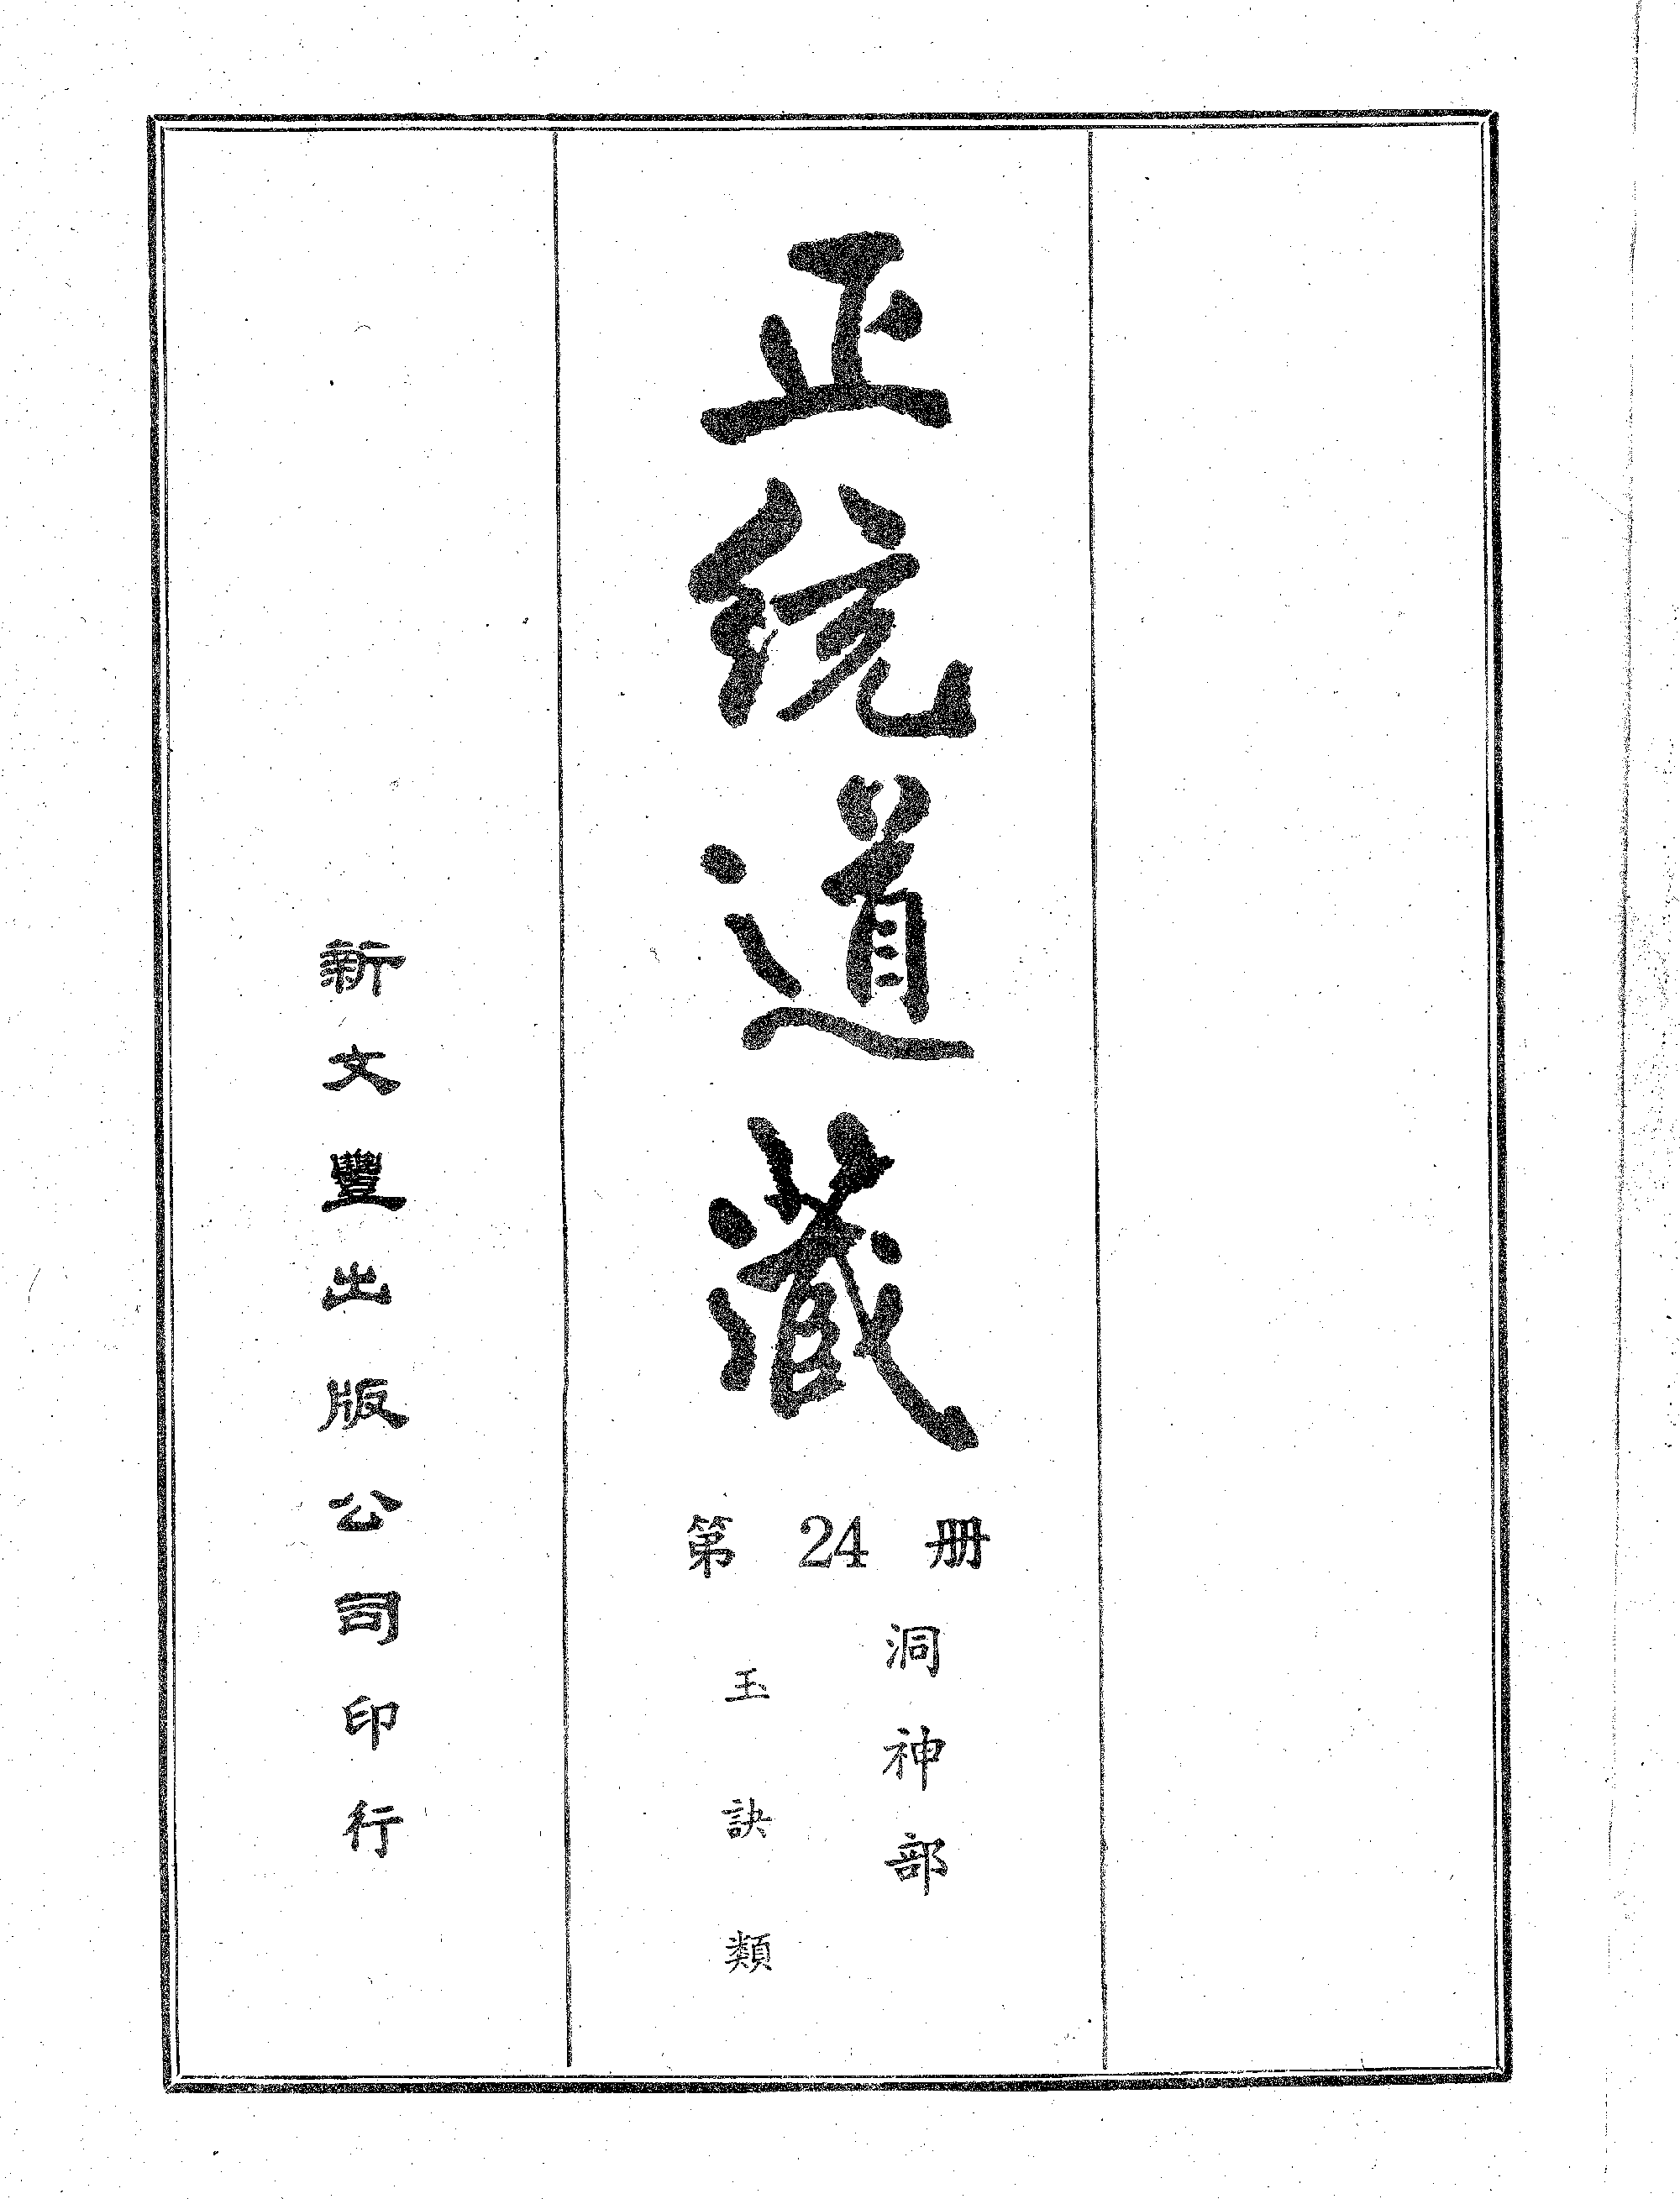 正統道藏
第24册
洞神部
玉訣類
新文豐出版公司印行